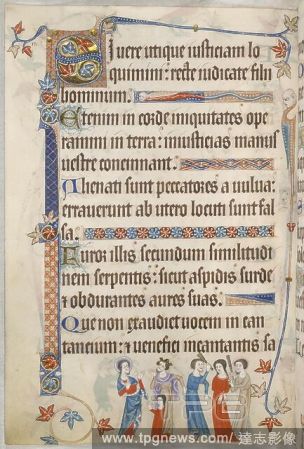 Si uere utique iusticiam lo
quimini: recte iudicate filii
hominum.
Etenim in corde iniquitates ope
ramini in terra: iniusticias manus
uestre concinnant.
Alienati sunt peccatores a uulua:
errauerunt ab utero locuti sunt fal
sa.
Furor illis secundum similitudi
nem serpentis: sicut aspidis surde
& obdurantes aures suas.
Que non exaudiet uocem in can
tancium: & uenefici incantantis sa
www.tpgnews.com/達志影像